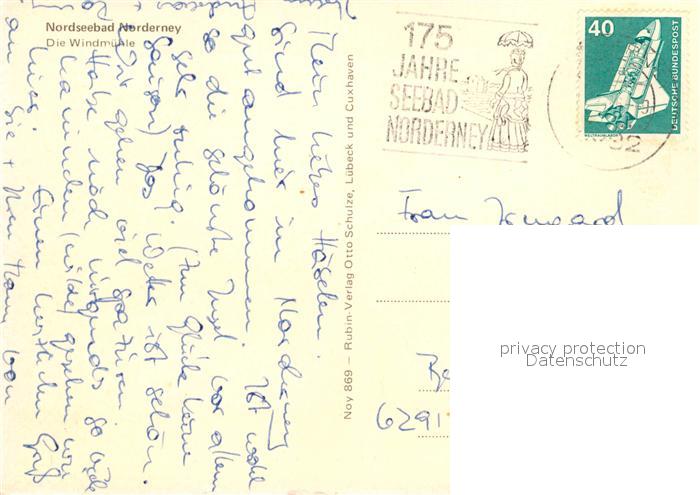 Nordseebad Norderney
Die Windmühle
175
JAHRE
SEEBAD
NORDERNEY
40
DEUTSCHE BUNDESPOST
WELTRAUMLABOR
Noy 869 — Rubin-Verlag Otto Schulze, Lübeck und Cuxhaven
Mein liebes Häselen.
Sind hier in Norderney
gut angekommen. Ist wohl
so die schönste Insel vor allem
sehr ruhig. (Zum Glück keine
Saison) Das Wetter ist schön.
Wir gehen viel spazieren.
Habe noch nirgends so viele
Kaninchen (wilde) gesehen wie
hier. Einen herzlichen Gruß
an Sie + Ihren Mann von
Frau Irmgard
6291
privacy protection
Datenschutz